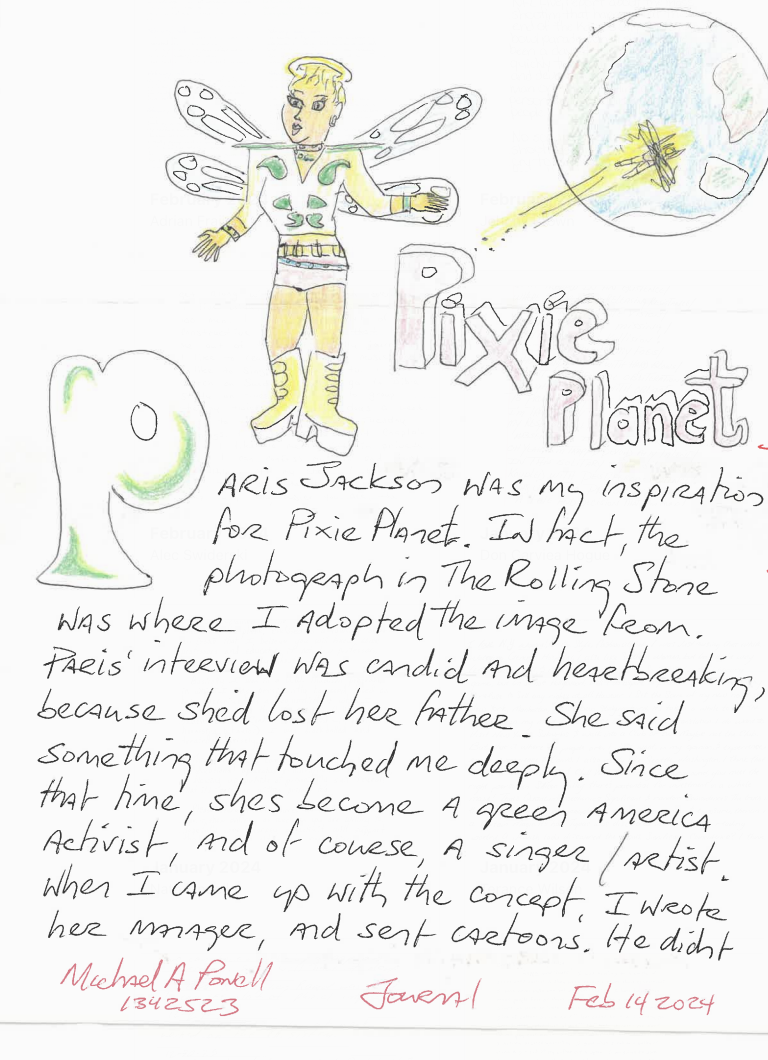 Pixie
Planet
PARIS JACKSON WAS my inspiration
for Pixie Planet. In fact, the
photograph in The Rolling Stone
WAS where I Adopted the image from.
PARis' interview WAS candid and heartbreaking,
because she'd lost her father. She said
something that touched me deeply. Since
that time, shes become A green AMERICA
Activist, and of course, A singer/artist.
When I came up with the concept, I wrote
her manager, and sent cartoons. He didnt
Michael A Powell
1342523
Journal
Feb 14 2024